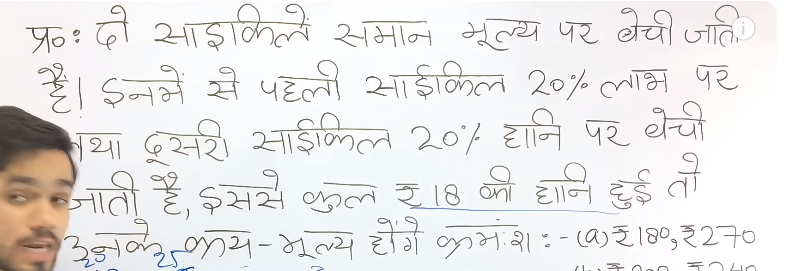 प्र०: दो साइकिलें समान मूल्य पर बेची जाती
हैं। इनमें से पहली साईकिल 20% लाभ पर
तथा दूसरी साईकिल 20% हानि पर बेची
जाती है, इससे कुल ₹18 की हानि हुई तो
उनके क्रय-मूल्य होंगे क्रमशः :- (a) ₹180, ₹270
25